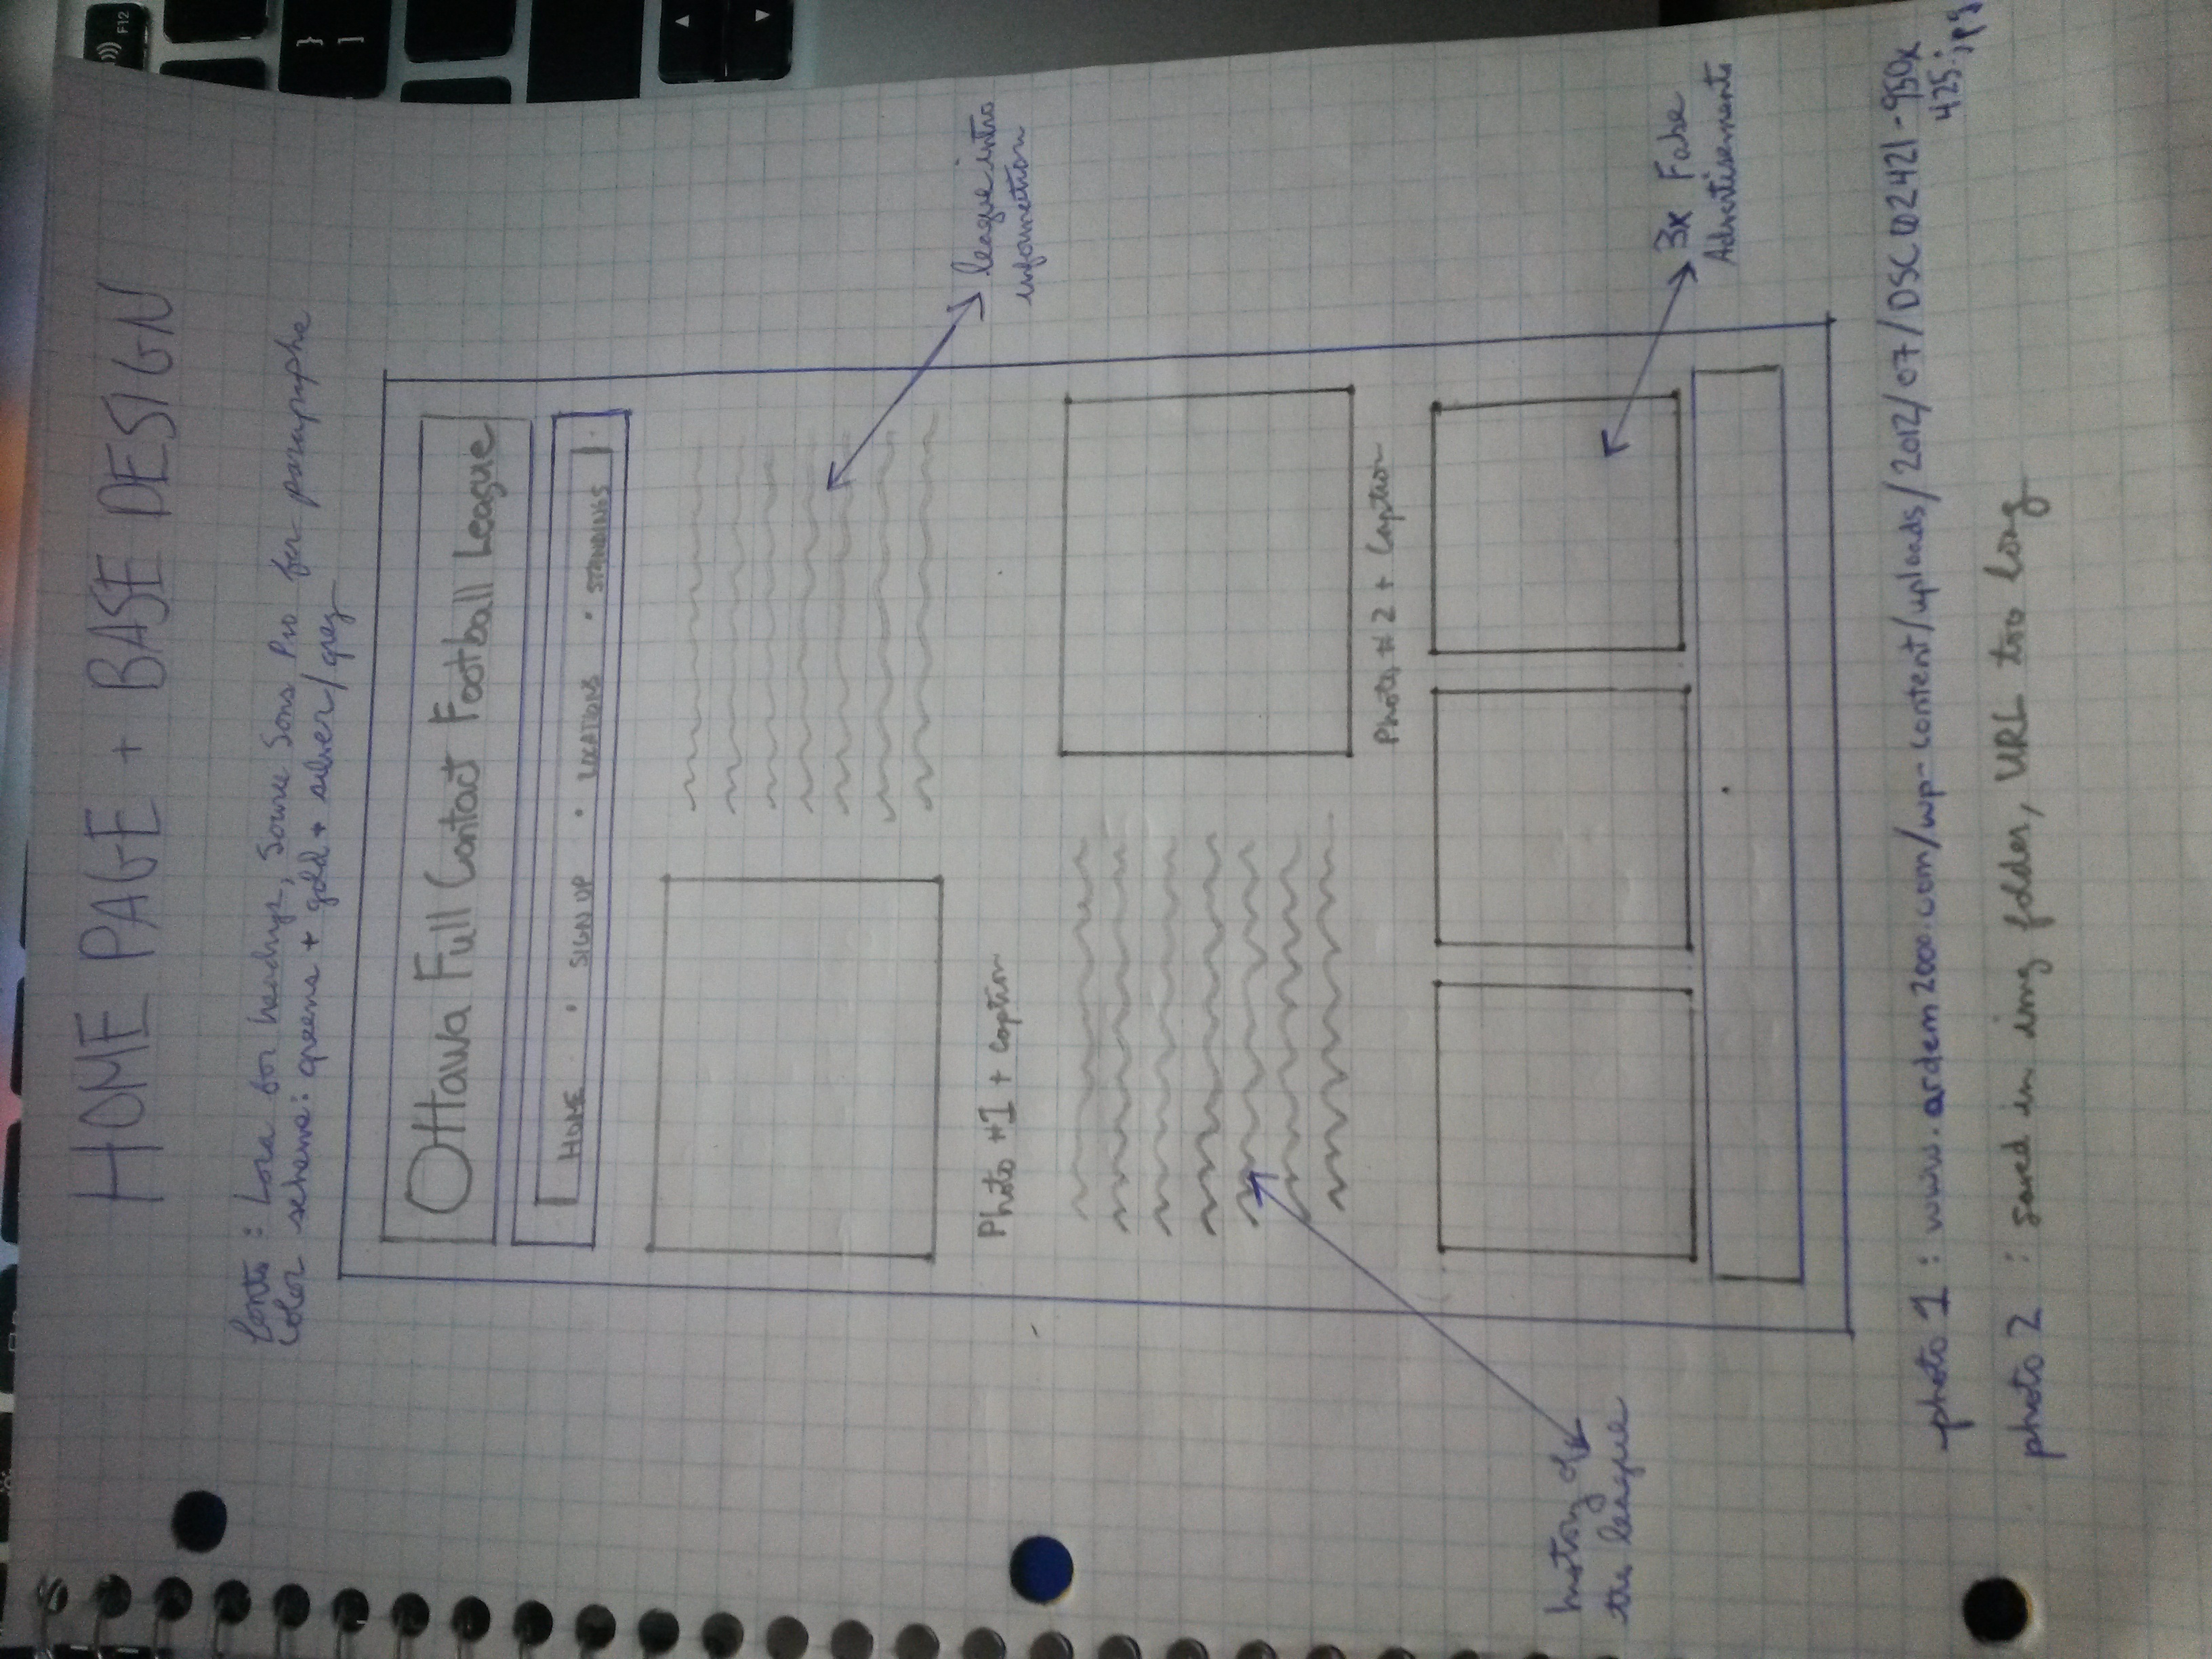 HOME PAGE + BASE DESIGN
fonts : Lora for headings, Source Sans Pro for paragraphs
Color schema: greens + gold + silver/grey
Ottawa Full Contact Football League
HOME • SIGN UP • LOCATIONS • STANDINGS
league intro
information
Photo #1 + caption
Photo #2 + Caption
history of
the league
3x Fake
Advertisements
photo 1 : www.ardem2000.com/wp-content/uploads/2012/07/DSC02421-950x
425.jpg
photo 2 : saved in img folder, URL too long
F12
}
]